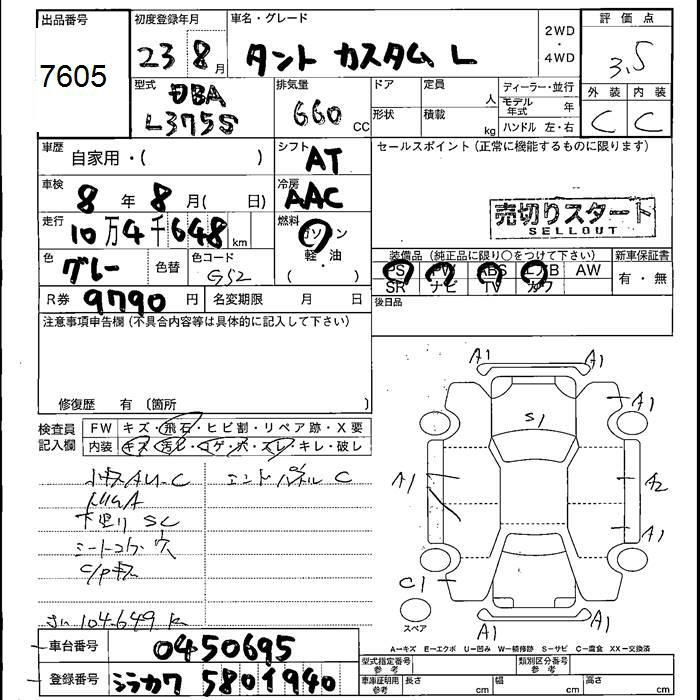 出品番号 初度登録年月 車名・グレード 評価点
7605 23 8月 タント カスタム L 2WD・4WD 3.5
型式 排気量 ドア 定員 人 ディーラー・並行 外装 内装
DBA 660 CC 形状 積載 kg モデル年式 年 C C
L375S ハンドル 左・右
車歴 自家用・( ) シフト AT セールスポイント(正常に機能するものに限ります)
車検 8年 8月( 日) 冷房 AAC
走行 10万4千648km 燃料 ガソリン・軽・油 ( ) 売切りスタート
SELLOUT
色 グレー 色替 色コード G52 装備品(純正品に限り○をつけて下さい) 新車保証書
PS PW ABS エアB AW 有・無
SR ナビ TV カワ
R券 9790円 名変期限 月 日 後日品
注意事項申告欄(不具合内容等は具体的に記入して下さい)
修復歴 有 〔箇所 〕
検査員記入欄 FW キズ・飛石・ヒビ割・リペア跡・X要
内装 キズ・汚レ・コゲ・穴・スレ・キレ・破レ
小キズAU-C エンドパネル C
下廻り SC
シートコゲ 穴
C/Pキズ
104.649 K
A1 A1
A1
S1
A1 A2
A1
C1
A1 A1
スペア
A-キズ E-エクボ U-凹み W-補修跡 S-サビ C-腐食 XX-交換済
車台番号 0450695 型式指定番号 参考 類別区分番号 参考
登録番号 シラカワ 580 1 940 車庫証明用 参考 長さ cm 幅 cm 高さ cm